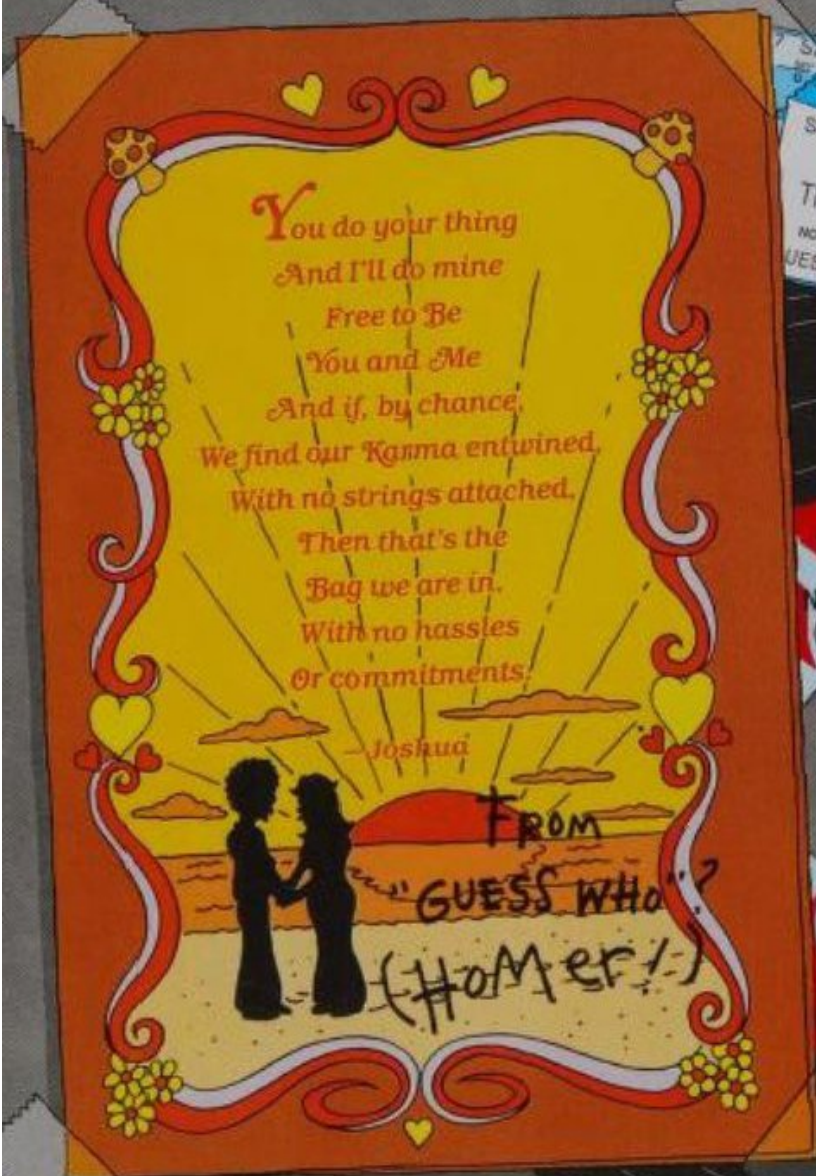 You do your thing
And I'll do mine
Free to Be
You and Me
And if, by chance,
We find our Karma entwined,
With no strings attached,
Then that's the
Bag we are in.
With no hassles
Or commitments.
—Joshua
FROM
"GUESS WHO"?
(HOMER!)